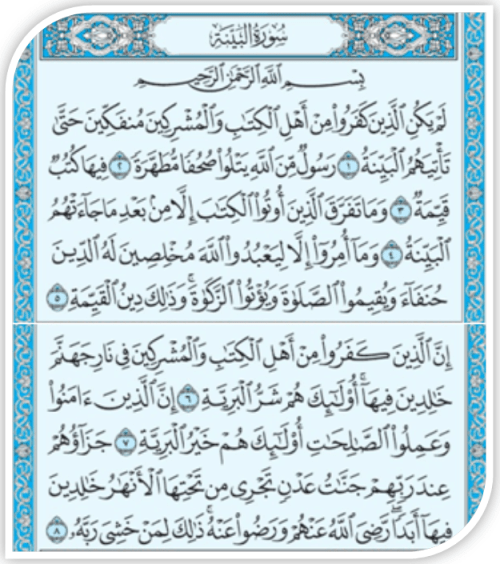 سُورَةُ البَيِّنَةِ
بِسْمِ اللَّهِ الرَّحْمَٰنِ الرَّحِيمِ
لَمْ يَكُنِ الَّذِينَ كَفَرُوا مِنْ أَهْلِ الْكِتَٰبِ وَالْمُشْرِكِينَ مُنفَكِّينَ حَتَّىٰ
تَأْتِيَهُمُ الْبَيِّنَةُ ١ رَسُولٌ مِّنَ اللَّهِ يَتْلُوا صُحُفًا مُّطَهَّرَةً ٢ فِيهَا كُتُبٌ
قَيِّمَةٌ ٣ وَمَا تَفَرَّقَ الَّذِينَ أُوتُوا الْكِتَٰبَ إِلَّا مِنۢ بَعْدِ مَا جَاءَتْهُمُ
الْبَيِّنَةُ ٤ وَمَا أُمِرُوا إِلَّا لِيَعْبُدُوا اللَّهَ مُخْلِصِينَ لَهُ الدِّينَ
حُنَفَاءَ وَيُقِيمُوا الصَّلَوٰةَ وَيُؤْتُوا الزَّكَوٰةَ ۚ وَذَٰلِكَ دِينُ الْقَيِّمَةِ ٥
إِنَّ الَّذِينَ كَفَرُوا مِنْ أَهْلِ الْكِتَٰبِ وَالْمُشْرِكِينَ فِي نَارِ جَهَنَّمَ
خَٰلِدِينَ فِيهَا ۚ أُولَٰئِكَ هُمْ شَرُّ الْبَرِيَّةِ ٦ إِنَّ الَّذِينَ ءَامَنُوا
وَعَمِلُوا الصَّٰلِحَٰتِ أُولَٰئِكَ هُمْ خَيْرُ الْبَرِيَّةِ ٧ جَزَاؤُهُمْ
عِندَ رَبِّهِمْ جَنَّٰتُ عَدْنٍ تَجْرِي مِن تَحْتِهَا الْأَنْهَٰرُ خَٰلِدِينَ
فِيهَا أَبَدًا ۖ رَّضِيَ اللَّهُ عَنْهُمْ وَرَضُوا عَنْهُ ۚ ذَٰلِكَ لِمَنْ خَشِيَ رَبَّهُ ٨